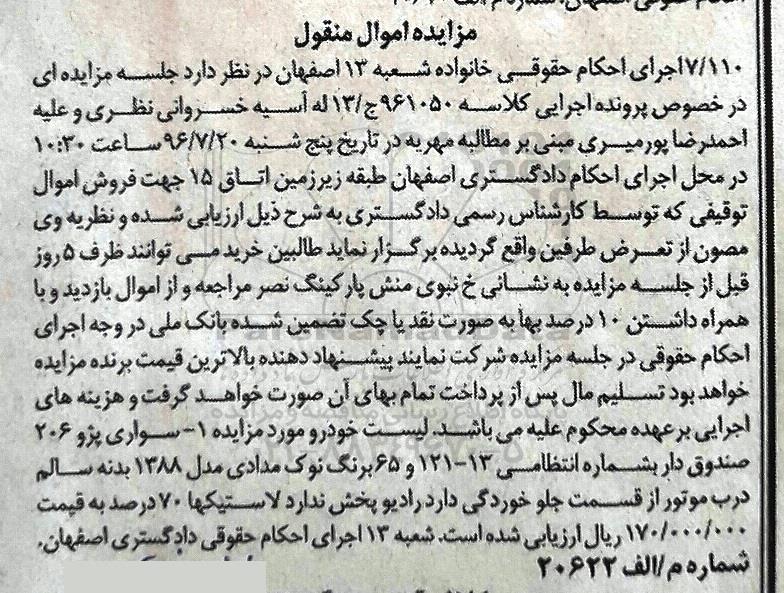 مزایده اموال منقول
۷/۱۱۰اجرای احکام حقوقی خانواده شعبه ۱۳ اصفهان در نظر دارد جلسه مزایده ای
در خصوص پرونده اجرایی کلاسه ۹۶۱۰۵۰ج/۱۳ له آسیه خسروانی نظری و علیه
احمدرضا پورمیری مبنی بر مطالبه مهریه در تاریخ پنج شنبه ۹۶/۷/۲۰ساعت ۱۰:۳۰
در محل اجرای احکام دادگستری اصفهان طبقه زیرزمین اتاق ۱۵ جهت فروش اموال
توقیفی که توسط کارشناس رسمی دادگستری به شرح ذیل ارزیابی شده و نظریه وی
مصون از تعرض طرفین واقع گردیده برگزار نماید طالبین خرید می توانند ظرف ۵ روز
قبل از جلسه مزایده به نشانی خ نبوی منش پارکینگ نصر مراجعه و از اموال بازدید و با
همراه داشتن ۱۰ درصد بها به صورت نقد یا چک تضمین شده بانک ملی در وجه اجرای
احکام حقوقی در جلسه مزایده شرکت نمایند پیشنهاد دهنده بالاترین قیمت برنده مزایده
خواهد بود تسلیم مال پس از پرداخت تمام بهای آن صورت خواهد گرفت و هزینه های
اجرایی بر عهده محکوم علیه می باشد. لیست خودرو مورد مزایده ۱- سواری پژو ۲۰۶
صندوق دار بشماره انتظامی ۱۳-۱۲۱ و ۶۵ برنگ نوک مدادی مدل ۱۳۸۸ بدنه سالم
درب موتور از قسمت جلو خوردگی دارد رادیو پخش ندارد لاستیکها ۷۰ درصد به قیمت
۱۷۰/۰۰۰/۰۰۰ ریال ارزیابی شده است. شعبه ۱۳ اجرای احکام حقوقی دادگستری اصفهان.
شماره م/الف ۲۰۶۲۲